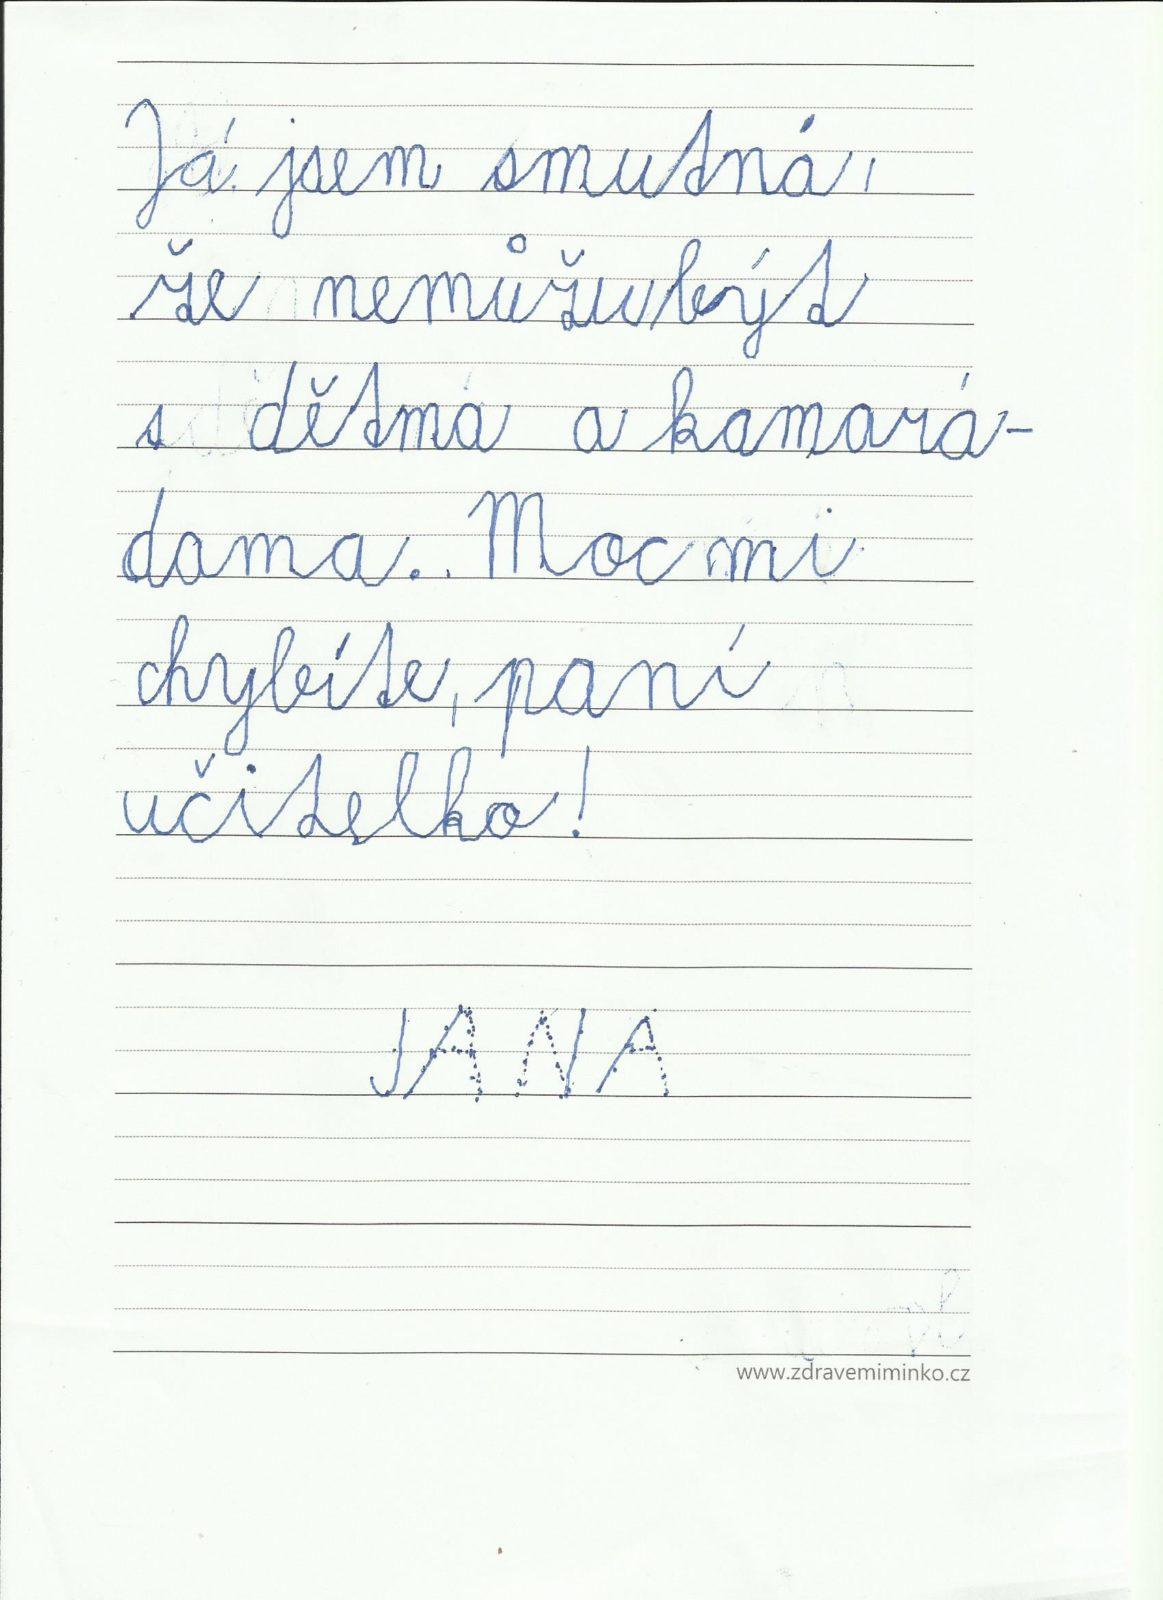 Já jsem smutná,
že nemůžu být
s dětma a kamará-
dama.. Moc mi
chybíte, paní
učitelko!
JANA
www.zdravemiminko.cz